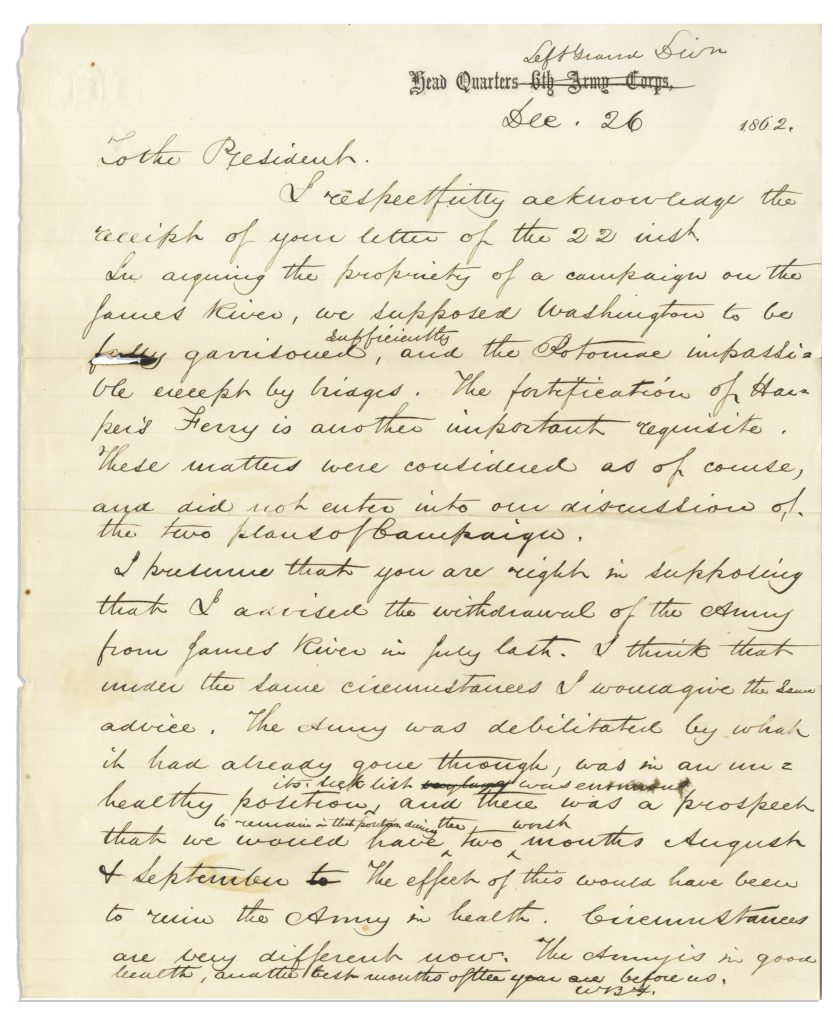 Left Grand Divn
Head Quarters 6th Army Corps,
Dec. 26 1862.
To the President.
I respectfully acknowledge the
receipt of your letter of the 22 inst.
In arguing the propriety of a campaign on the
James River, we supposed Washington to be
sufficiently
fully garrisoned, and the Potomac impassi=
ble except by bridges. The fortification of Har=
per's Ferry is another important requisite.
These matters were considered as of course,
and did not enter into our discussion of
the two plans of Campaign.
I presume that you are right in supposing
that I advised the withdrawal of the Army
from James River in July last. I think that
under the same circumstances I would give the same
advice. The Army was debilitated by what
it had already gone through, was in an un=
its sick list was enormous
healthy position, and there was a prospect
to remain in that position during the worst
that we would have two months August
& September to The effect of this would have been
to ruin the Army in health. Circumstances
are very different now. The Army is in good
health, and the best months of the year are before us.
W B F.